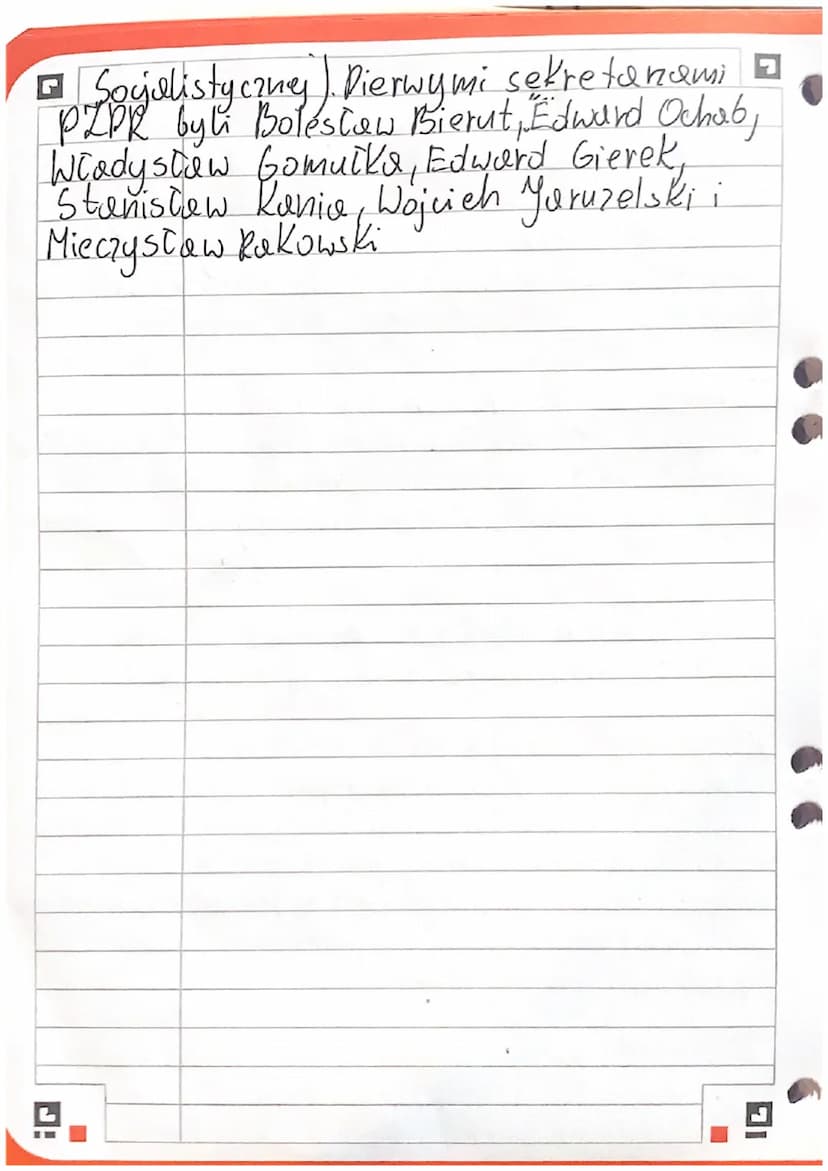 Socjalistycznej). Pierwymi sekretarzami
PZPR byli Bolesław Bierut, Edward Ochab,
Władysław Gomułka, Edward Gierek,
Stanisław Kania, Wojcieh Jaruzelski i
Mieczysław Rakowski